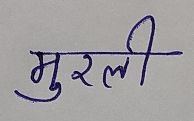 मुरली